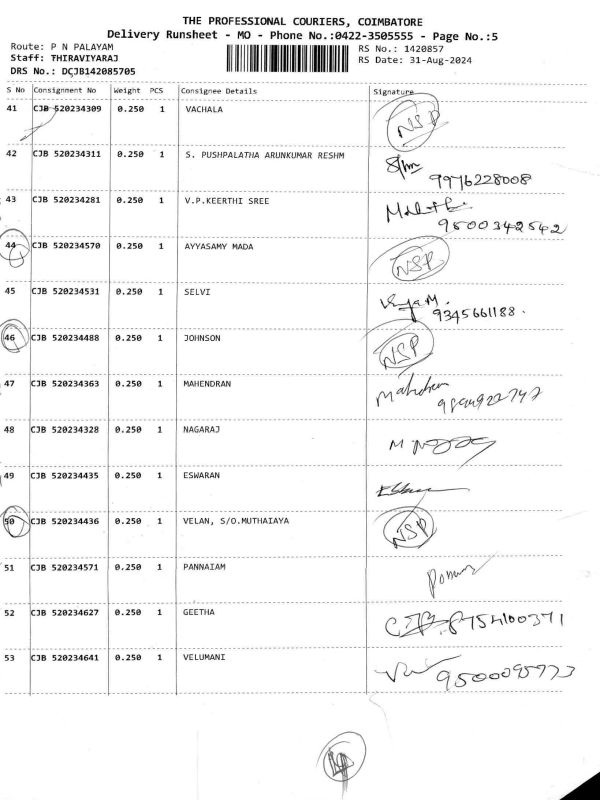 THE PROFESSIONAL COURIERS, COIMBATORE
Delivery Runsheet - MO - Phone No.:0422-3505555 - Page No.:5
Route: P N PALAYAM
Staff: THIRAVIYARAJ
DRS No.: DCJB142085705
RS No.: 1420857
RS Date: 31-Aug-2024
S No Consignment No Weight PCS Consignee Details Signature
41 CJB 520234309 0.250 1 VACHALA NSP
42 CJB 520234311 0.250 1 S. PUSHPALATHA ARUNKUMAR RESHM
9976228008
43 CJB 520234281 0.250 1 V.P.KEERTHI SREE
9500342542
44 CJB 520234570 0.250 1 AYYASAMY MADA NSP
45 CJB 520234531 0.250 1 SELVI
9345661188.
46 CJB 520234488 0.250 1 JOHNSON NSP
47 CJB 520234363 0.250 1 MAHENDRAN
48 CJB 520234328 0.250 1 NAGARAJ
49 CJB 520234435 0.250 1 ESWARAN
50 CJB 520234436 0.250 1 VELAN, S/O.MUTHAIAYA NSP
51 CJB 520234571 0.250 1 PANNAIAM
52 CJB 520234627 0.250 1 GEETHA 8754100371
53 CJB 520234641 0.250 1 VELUMANI 9500095773